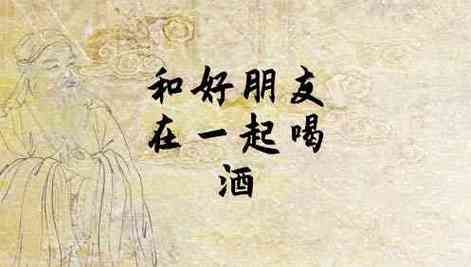 和好朋友
在一起喝
酒